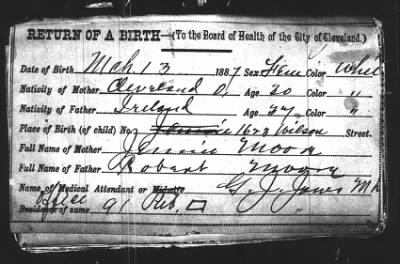 RETURN OF A BIRTH—(To the Board of Health of the City of Cleveland.)
Date of Birth Mch 13 1887 Sex Fem Color White
Nativity of Mother Cleveland O. Age 30 Color "
Nativity of Father Ireland Age 37 Color "
Place of Birth (of child) No. 1622 Wilson Street.
Full Name of Mother Jennie Moore
Full Name of Father Robert Moore
Name of Medical Attendant or Midwife G. J. Jones M D
Office
Residence of same 91 Pub. □